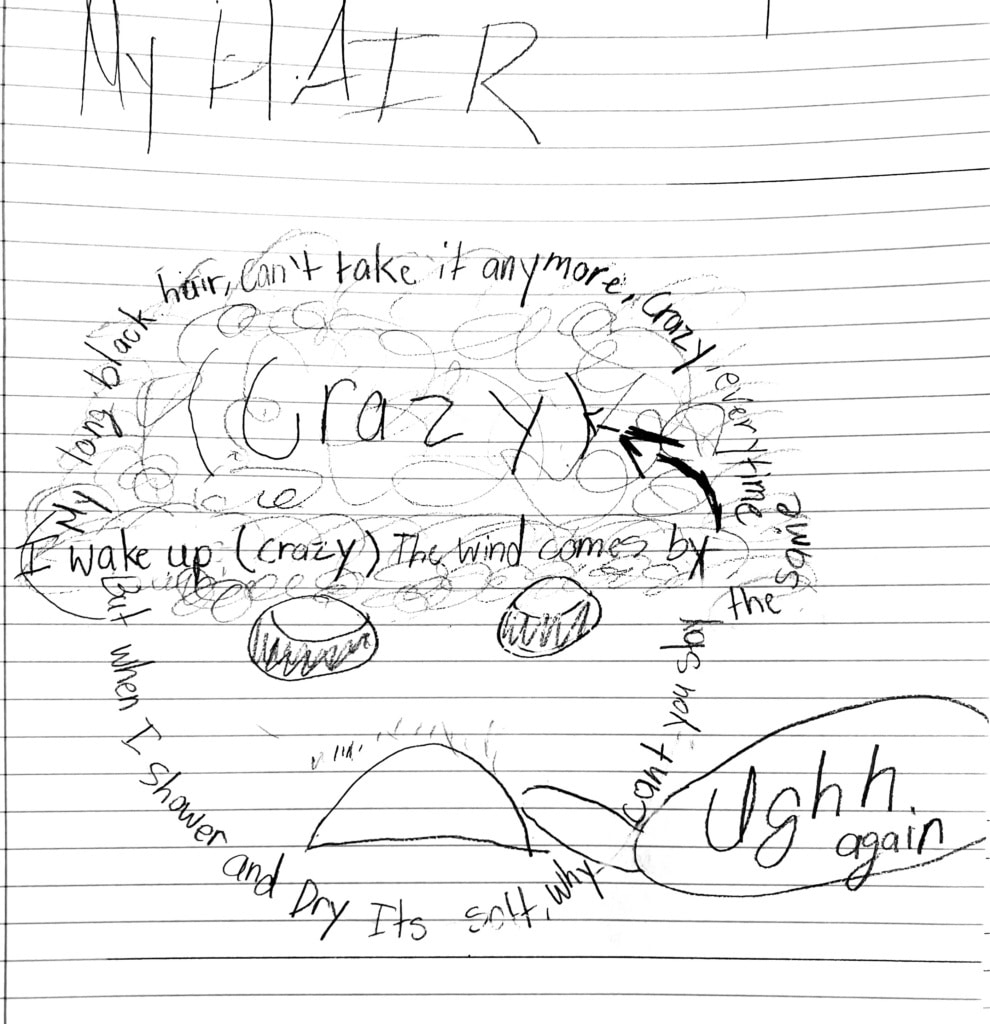 My HAIR
My long black hair, can't take it anymore, crazy, everytime
I wake up (crazy) The wind comes by
(Crazy)
But when I shower and Dry Its soft, why cant you stay the same
Ughh.
again